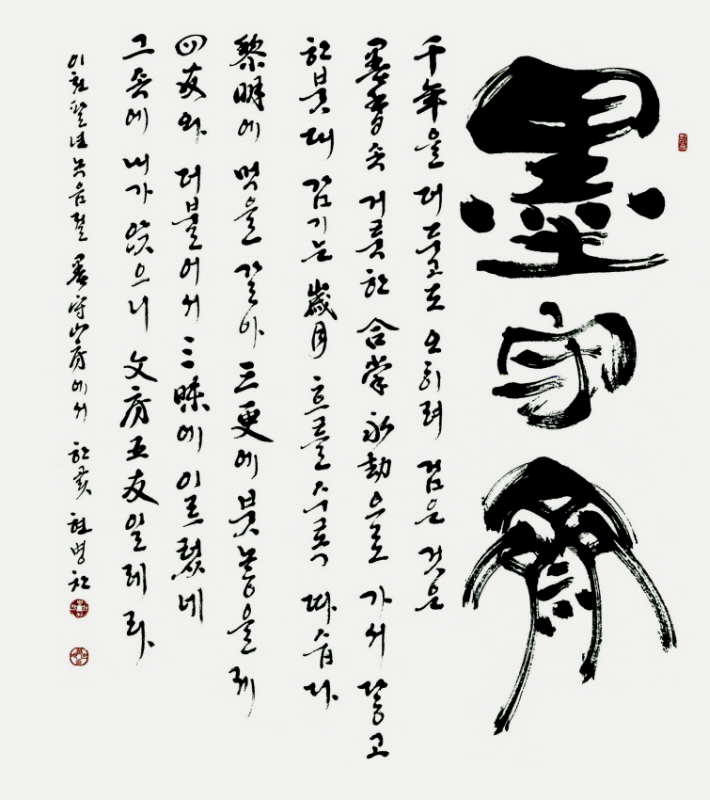 墨守齋
千年을 더두고도 오히려 검은 것은
墨香 속 거룩한 合掌 永劫으로 가서 닿고
한붓대 감기는 歲月 흐를수록 따습다.
黎明에 먹을 갈아 三更에 붓농을 떼
四友와 더불어서 三昧에 이르렀네
그 속에 내가 있으니 文房五友일레라.
녹음절 墨守山房에서 한곬 현병찬